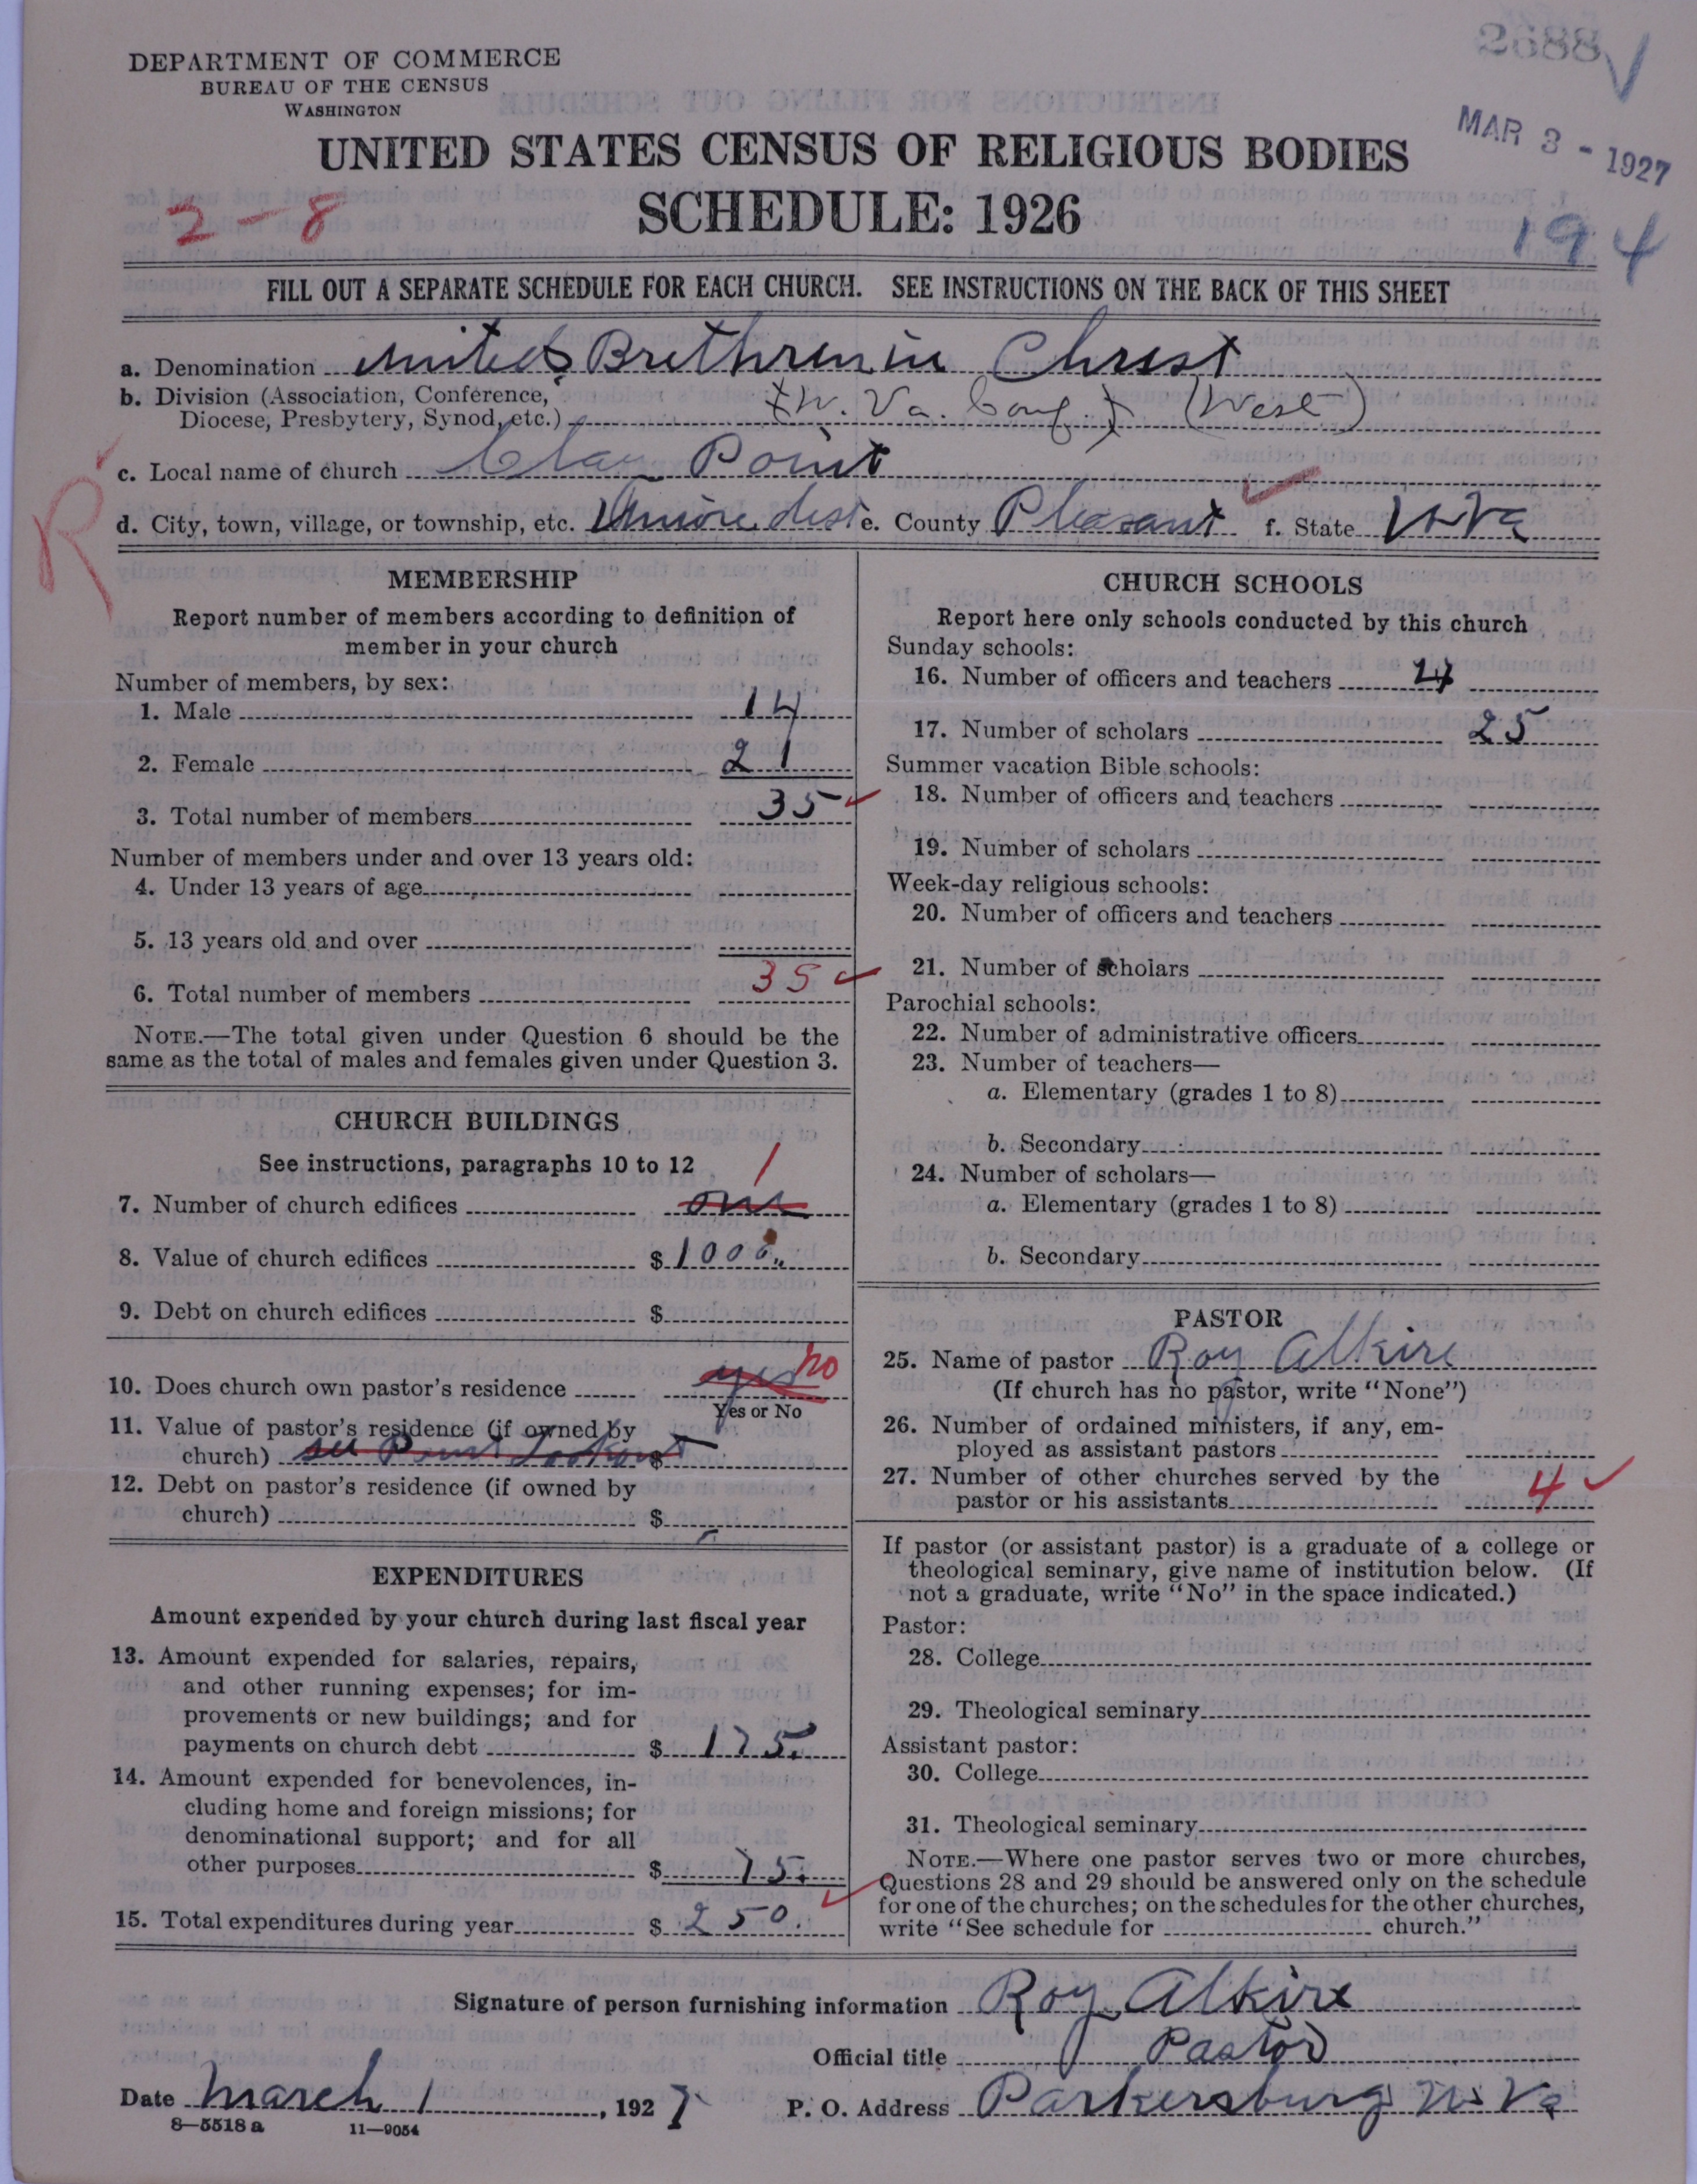 2688
DEPARTMENT OF COMMERCE
BUREAU OF THE CENSUS
WASHINGTON
MAR 3 - 1927
UNITED STATES CENSUS OF RELIGIOUS BODIES
2-8
SCHEDULE: 1926
194
FILL OUT A SEPARATE SCHEDULE FOR EACH CHURCH. SEE INSTRUCTIONS ON THE BACK OF THIS SHEET
a. Denomination United Brethren in Christ
b. Division (Association, Conference,
Diocese, Presbytery, Synod, etc.) (W. Va. Conf.) (West)
c. Local name of church Clay Point
R
d. City, town, village, or township, etc. Union dist e. County Pleasant f. State W Va
MEMBERSHIP
Report number of members according to definition of
member in your church
Number of members, by sex:
1. Male 14
2. Female 21
3. Total number of members 35
Number of members under and over 13 years old:
4. Under 13 years of age
5. 13 years old and over
6. Total number of members 35
NOTE.—The total given under Question 6 should be the
same as the total of males and females given under Question 3.
CHURCH BUILDINGS
See instructions, paragraphs 10 to 12
1
7. Number of church edifices one
8. Value of church edifices $ 1000
9. Debt on church edifices $
10. Does church own pastor's residence yes no
Yes or No
11. Value of pastor's residence (if owned by
church) see Point Lookout $
12. Debt on pastor's residence (if owned by
church) $
EXPENDITURES
Amount expended by your church during last fiscal year
13. Amount expended for salaries, repairs,
and other running expenses; for im-
provements or new buildings; and for
payments on church debt $ 175.
14. Amount expended for benevolences, in-
cluding home and foreign missions; for
denominational support; and for all
other purposes $ 75.
15. Total expenditures during year $ 250.
CHURCH SCHOOLS
Report here only schools conducted by this church
Sunday schools:
16. Number of officers and teachers 4
17. Number of scholars 25
Summer vacation Bible schools:
18. Number of officers and teachers
19. Number of scholars
Week-day religious schools:
20. Number of officers and teachers
21. Number of scholars
Parochial schools:
22. Number of administrative officers
23. Number of teachers—
a. Elementary (grades 1 to 8)
b. Secondary
24. Number of scholars—
a. Elementary (grades 1 to 8)
b. Secondary
PASTOR
25. Name of pastor Roy Alkire
(If church has no pastor, write "None")
26. Number of ordained ministers, if any, em-
ployed as assistant pastors
27. Number of other churches served by the
pastor or his assistants 4
If pastor (or assistant pastor) is a graduate of a college or
theological seminary, give name of institution below. (If
not a graduate, write "No" in the space indicated.)
Pastor:
28. College
29. Theological seminary
Assistant pastor:
30. College
31. Theological seminary
NOTE.—Where one pastor serves two or more churches,
Questions 28 and 29 should be answered only on the schedule
for one of the churches; on the schedules for the other churches,
write "See schedule for church."
Signature of person furnishing information Roy Alkire
Official title Pastor
Date March 1, 1927 P. O. Address Parkersburg W. Va
8—5518 a 11—9054